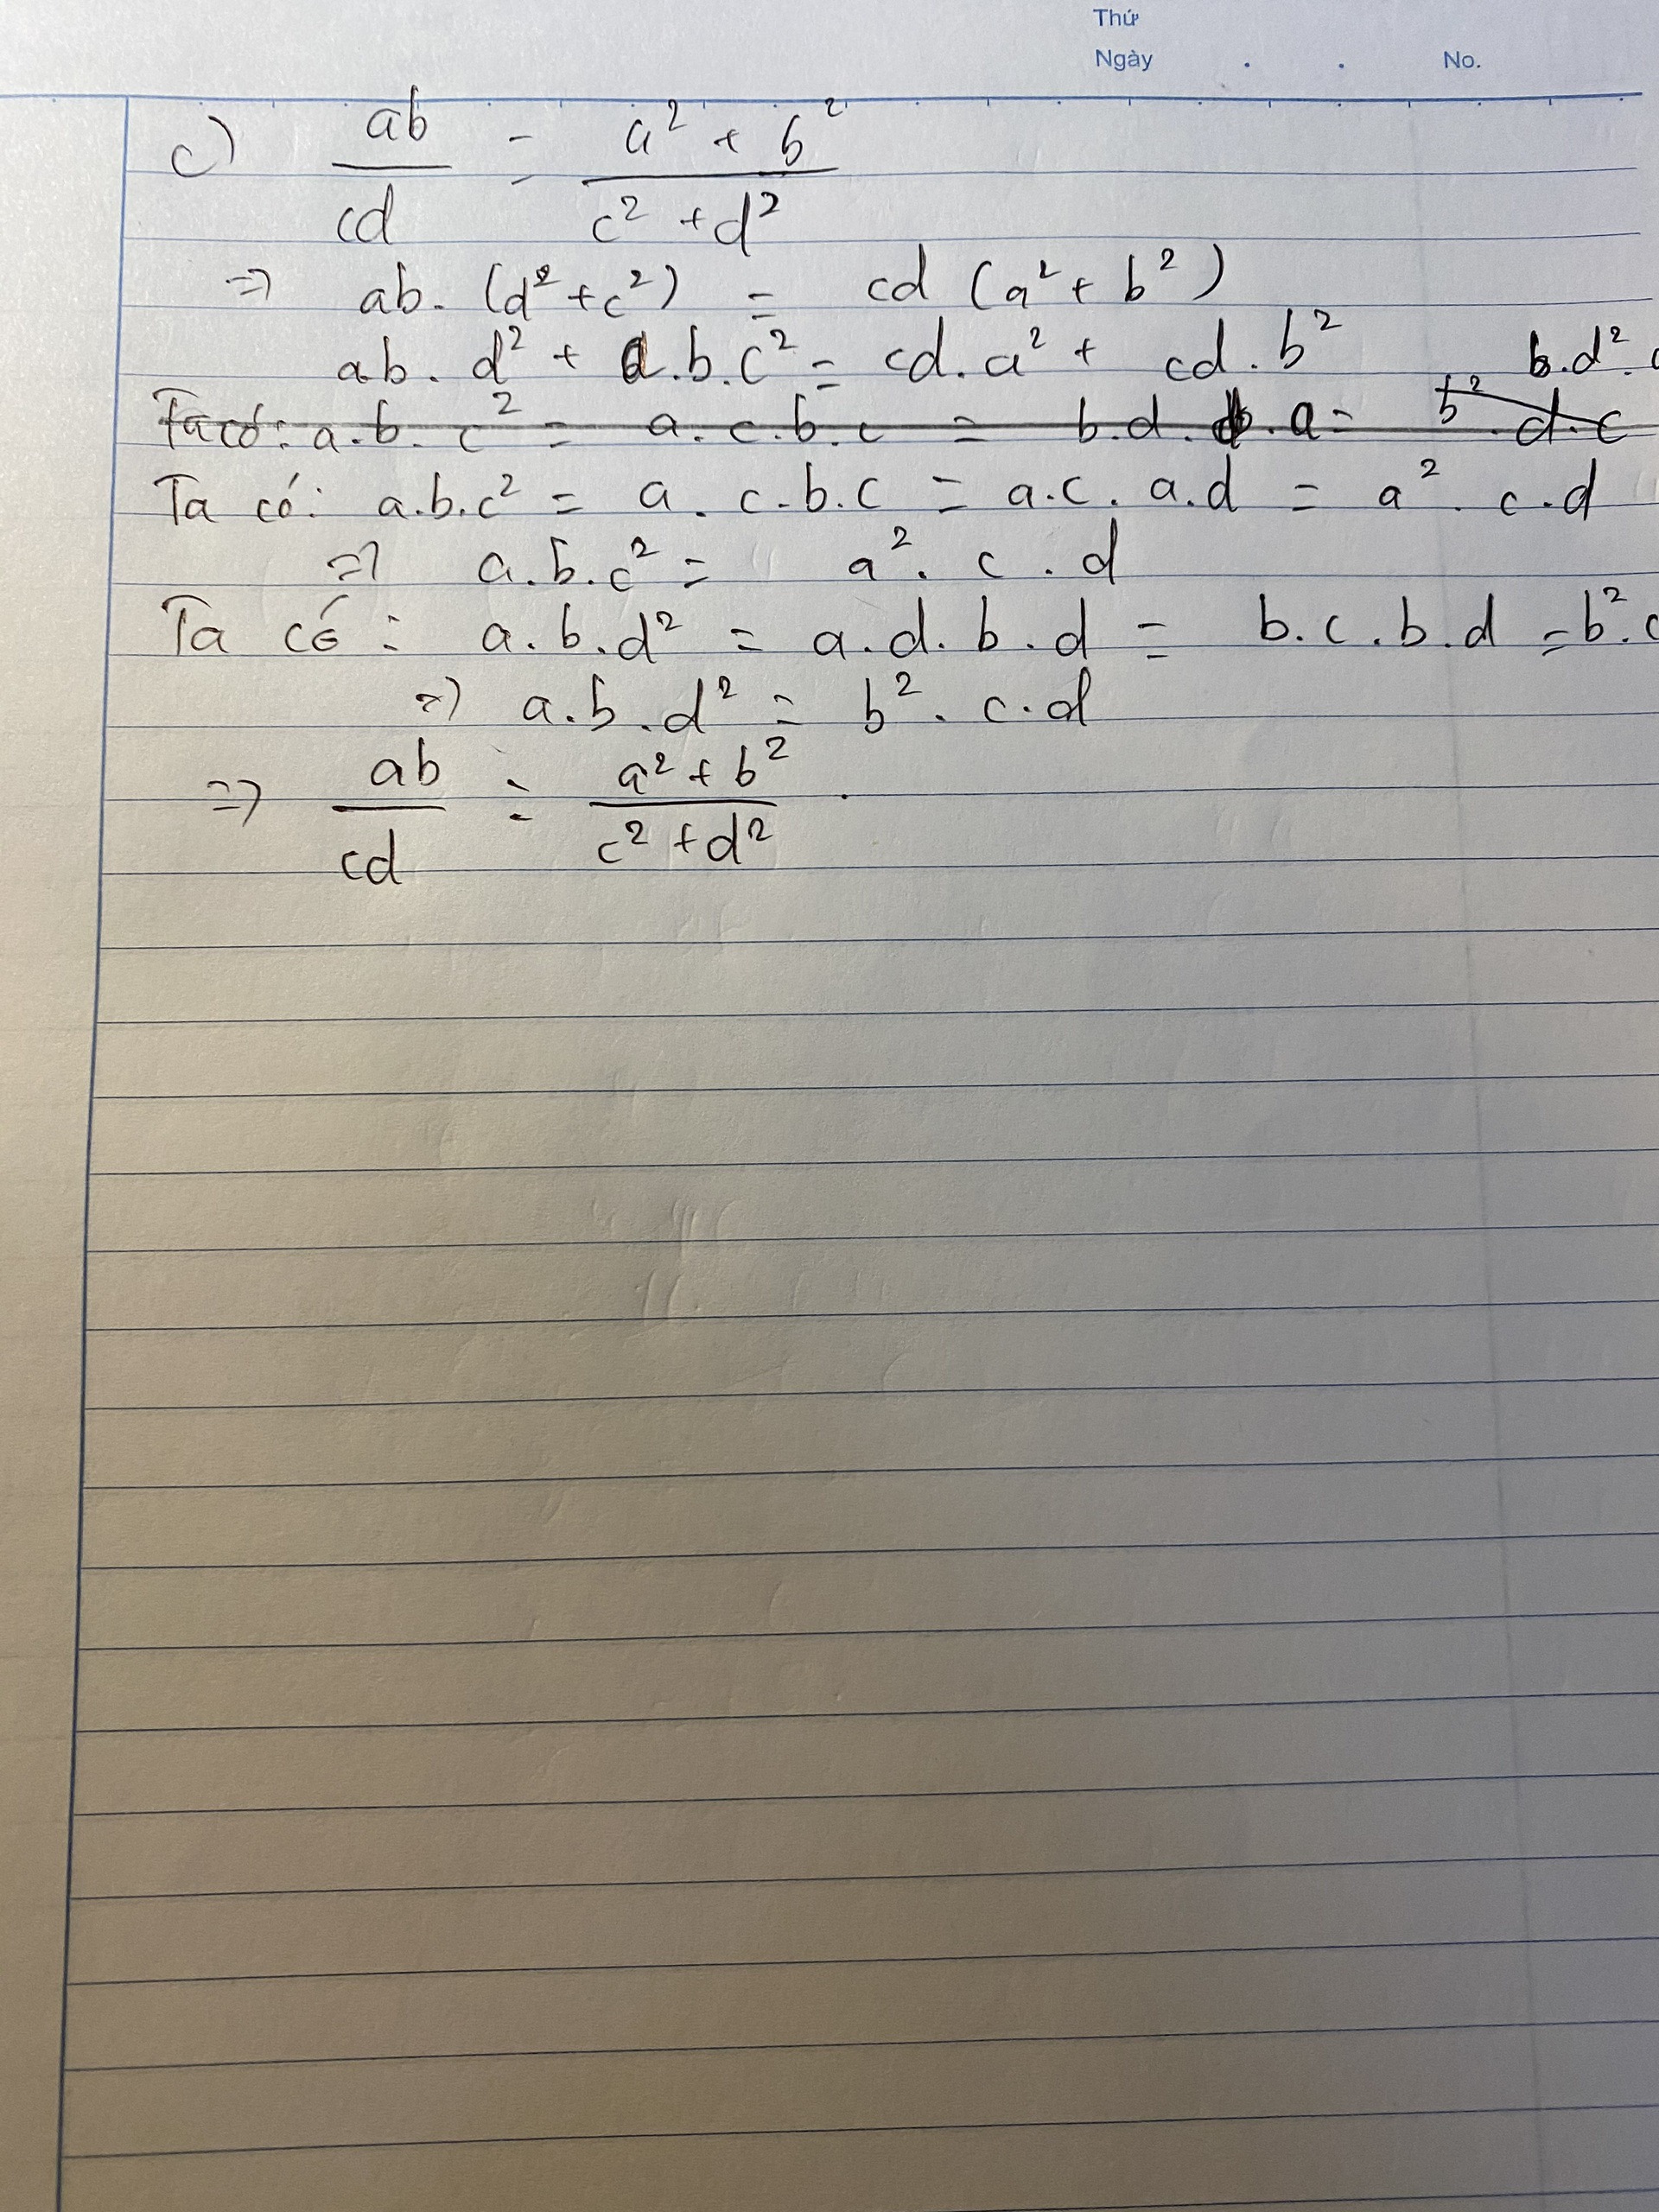 Thứ
Ngày . . No.
c) ab/cd = a² + b²/c² + d²
=> ab. (d² + c²) = cd (a² + b²)
ab. d² + a.b.c² = cd.a² + cd.b² b.d².
Ta có: a.b.c² = a.c.b.c = b.d.b.a = b².d.c
Ta có: a.b.c² = a.c.b.c = a.c.a.d = a².c.d
=> a.b.c² = a².c.d
Ta có: a.b.d² = a.d.b.d = b.c.b.d = b².c
=> a.b.d² = b².c.d
=> ab/cd = a² + b²/c² + d² .